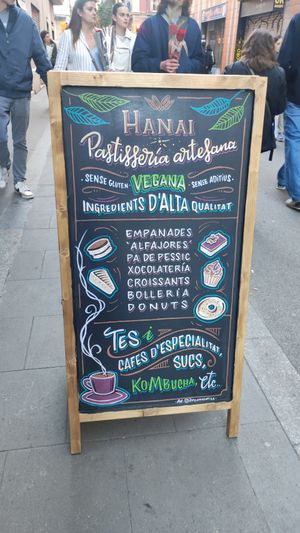 HANAI
Pastisseria artesana
- SENSE GLUTEN - VEGANA - SENSE ADITIUS -
INGREDIENTS D'ALTA QUALITAT
EMPANADES
"ALFAJORES"
PA DE PESSIC
XOCOLATERÍA
CROISSANTS
BOLLERÍA
DONUTS
TES i
CAFES D'ESPECIALITAT,
SUCS,
KOMBUCHA, etc..